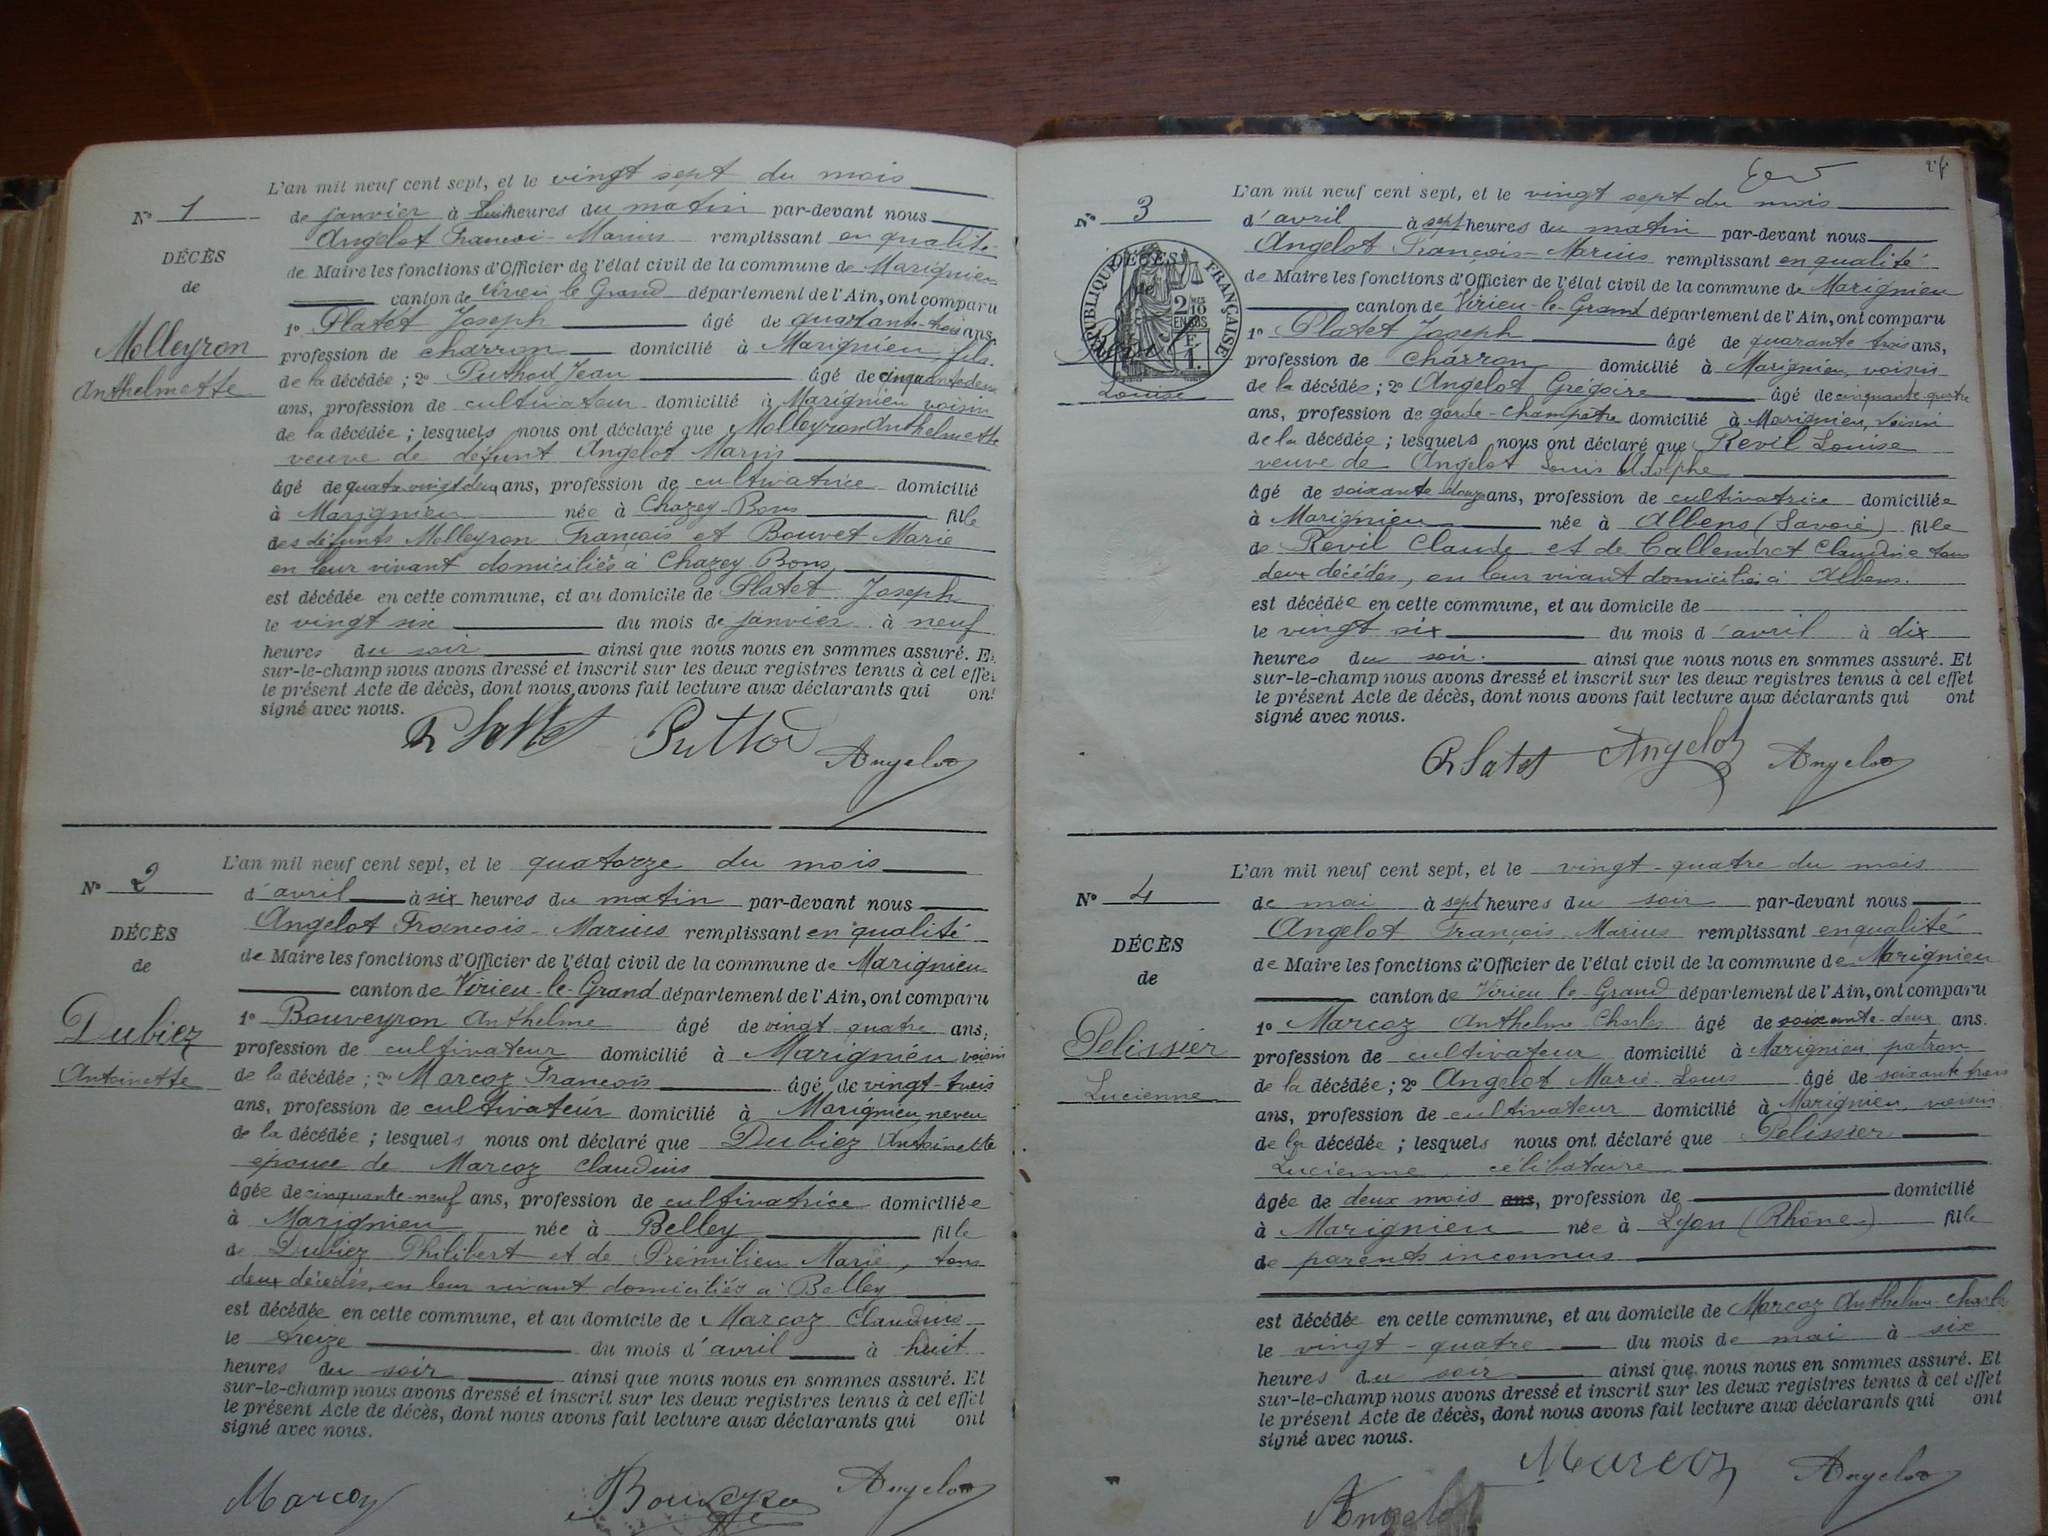 L'an mil neuf cent sept, et le vingt sept du mois
N° 1
de janvier à huit heures du matin par-devant nous
Angelot François-Marius remplissant en qualité
DÉCÈS
de
de Maire les fonctions d'Officier de l'état civil de la commune de Marignieu
canton de Virieu le Grand département de l'Ain, ont comparu
Molleyron
Anthelmette
1° Platet Joseph âgé de quarante-trois ans,
profession de charron domicilié à Marignieu, fils
de la décédée ; 2° Puthod Jean âgé de cinquante deux
ans, profession de cultivateur domicilié à Marignieu voisin
de la décédée ; lesquels nous ont déclaré que Molleyron Anthelmette
veuve de défunt Angelot Marius
âgé de quatre vingt deux ans, profession de cultivatrice domicilié
à Marignieu née à Chazey-Bons fille
des défunts Molleyron François et Bouvet Marie
en leur vivant domiciliés à Chazey Bons
est décédée en cette commune, et au domicile de Platet Joseph
le vingt six du mois de janvier à neuf
heures du soir ainsi que nous nous en sommes assuré. Et
sur-le-champ nous avons dressé et inscrit sur les deux registres tenus à cet effet
le présent Acte de décès, dont nous avons fait lecture aux déclarants qui ont
signé avec nous.
Platet Puttod Angelot
N° 2
DÉCÈS
de
Dubiez
Antoinette
L'an mil neuf cent sept, et le quatorze du mois
d'avril à six heures du matin par-devant nous
Angelot François-Marius remplissant en qualité
de Maire les fonctions d'Officier de l'état civil de la commune de Marignieu
canton de Virieu-le-Grand département de l'Ain, ont comparu
1° Bouveyron Anthelme âgé de vingt quatre ans,
profession de cultivateur domicilié à Marignieu voisin
de la décédée ; 2° Marcoz François âgé de vingt-trois
ans, profession de cultivateur domicilié à Marignieu neveu
de la décédée ; lesquels nous ont déclaré que Dubiez Antoinette
épouse de Marcoz Claudius
âgée de cinquante-neuf ans, profession de cultivatrice domiciliée
à Marignieu née à Belley fille
de Dubiez Philibert et de Prémilieu Marie, tous
deux décédés, en leur vivant domiciliés à Belley
est décédée en cette commune, et au domicile de Marcoz Claudius
le treize du mois d'avril à huit
heures du soir ainsi que nous nous en sommes assuré. Et
sur-le-champ nous avons dressé et inscrit sur les deux registres tenus à cet effet
le présent Acte de décès, dont nous avons fait lecture aux déclarants qui ont
signé avec nous.
Marcoz Angelot
N° 3
DÉCÈS
de
RÉPUBLIQUE FRANÇAISE
2/10
EN SUS
1F
Louise
L'an mil neuf cent sept, et le vingt sept du mois
d'avril à sept heures du matin par-devant nous
Angelot François-Marius remplissant en qualité
de Maire les fonctions d'Officier de l'état civil de la commune de Marignieu
canton de Virieu-le-Grand département de l'Ain, ont comparu
1° Platet Joseph âgé de quarante trois ans,
profession de charron domicilié à Marignieu, voisin
de la décédée ; 2° Angelot Grégoire âgé de cinquante quatre
ans, profession de garde-champêtre domicilié à Marignieu, voisin
de la décédée ; lesquels nous ont déclaré que Revil Louise
veuve de Angelot Louis Adolphe
âgé de soixante douze ans, profession de cultivatrice domiciliée
à Marignieu née à Albens (Savoie) fille
de Revil Claude et de Callendret Claudine tous
deux décédés, en leur vivant domiciliés à Albens.
est décédée en cette commune, et au domicile de
le vingt six du mois d'avril à dix
heures du soir. ainsi que nous nous en sommes assuré. Et
sur-le-champ nous avons dressé et inscrit sur les deux registres tenus à cet effet
le présent Acte de décès, dont nous avons fait lecture aux déclarants qui ont
signé avec nous.
Platet Angelot Angelot
N° 4
DÉCÈS
de
Pelissier
Lucienne
L'an mil neuf cent sept, et le vingt-quatre du mois
de mai à sept heures du soir par-devant nous
Angelot François Marius remplissant en qualité
de Maire les fonctions d'Officier de l'état civil de la commune de Marignieu
canton de Virieu le Grand département de l'Ain, ont comparu
1° Marcoz Anthelme Charles âgé de soixante-deux ans.
profession de cultivateur domicilié à Marignieu patron
de la décédée ; 2° Angelot Marie-Louis âgé de soixante trois
ans, profession de cultivateur domicilié à Marignieu, voisin
de la décédée ; lesquels nous ont déclaré que Pelissier
Lucienne, célibataire
âgée de deux mois ans, profession de domicilié
à Marignieu née à Lyon (Rhône) fille
de parents inconnus
est décédée en cette commune, et au domicile de Marcoz Anthelme-Charles
le vingt-quatre du mois de mai à six
heures du soir ainsi que nous nous en sommes assuré. Et
sur-le-champ nous avons dressé et inscrit sur les deux registres tenus à cet effet
le présent Acte de décès, dont nous avons fait lecture aux déclarants qui ont
signé avec nous.
Angelot Marcoz Angelot